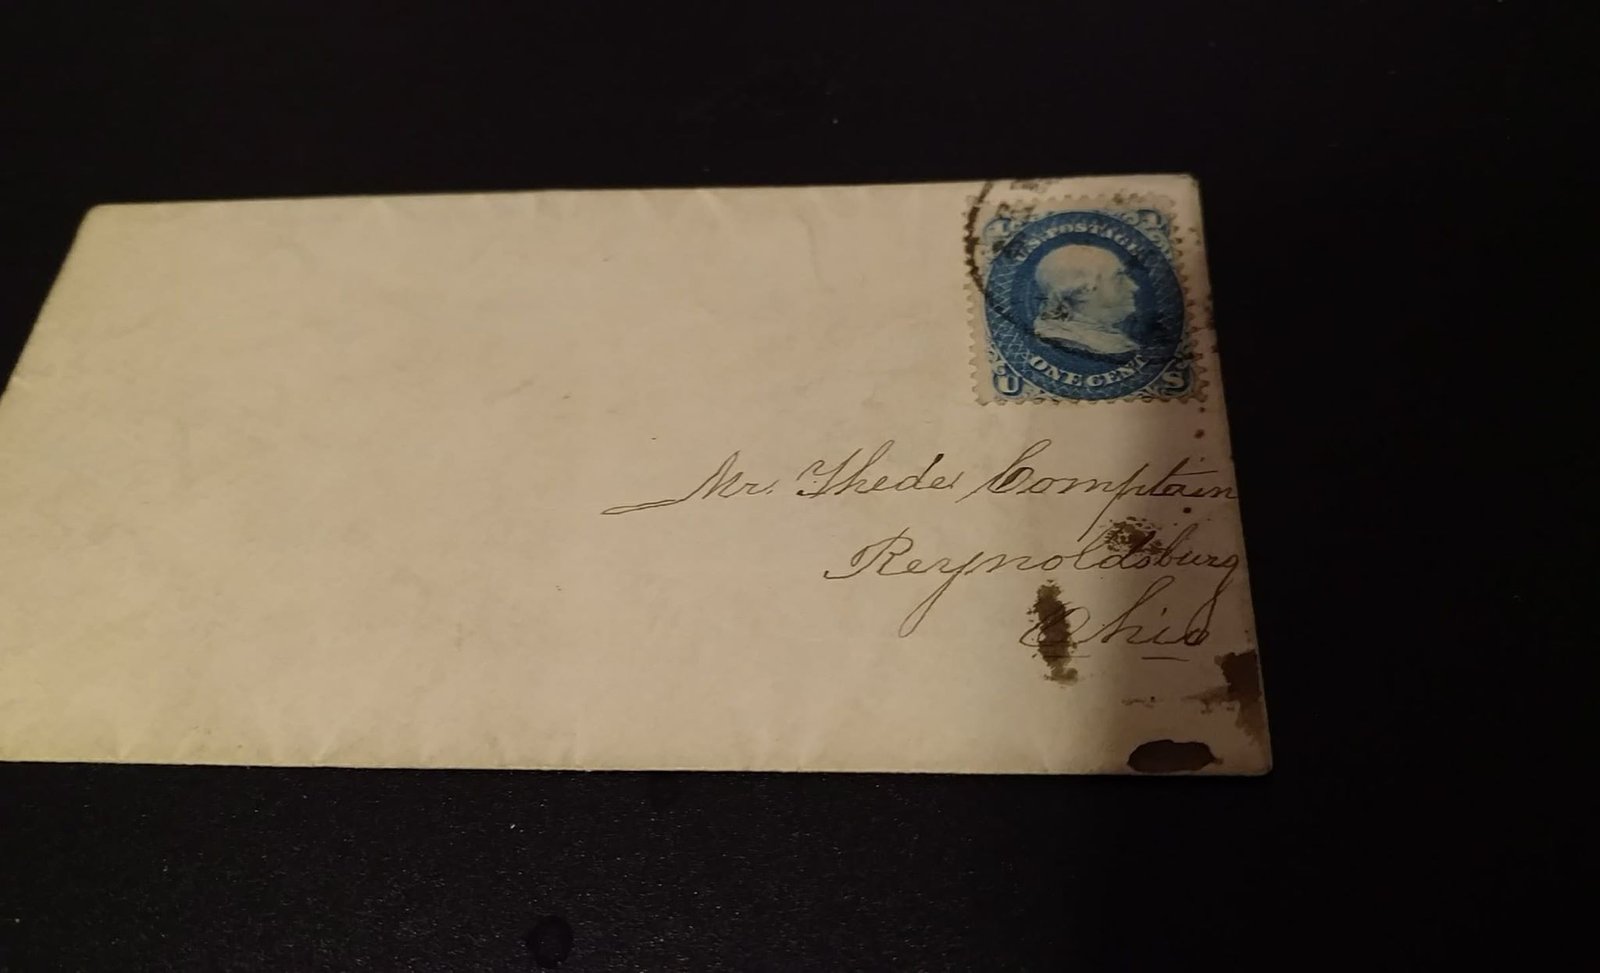 U.S. POSTAGE
ONE CENT
U S
Mr. Thede Comptain
Reynoldsburg
Ohio